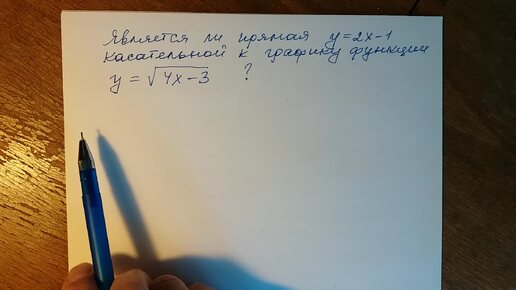 Является ли прямая y=2x-1
касательной к графику функции
y = √4x-3 ?